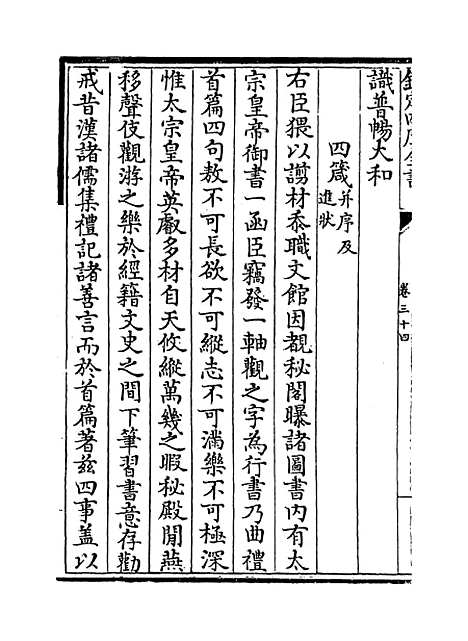 欽定四庫全書
卷三十四
識普暢大和
四箴并序及進狀
右臣猥以謭材忝職文館因覩秘閣曝諸圖書内有太
宗皇帝御書一函臣竊發一軸觀之字為行書乃曲禮
首篇四句敖不可長欲不可縱志不可滿樂不可極深
惟太宗皇帝英叡多材自天攸縱萬幾之暇秘殿閒燕
移聲伎觀游之樂於經籍文史之間下筆習書意存勸
戒昔漢諸儒集禮記諸善言而於首篇著兹四事盖以